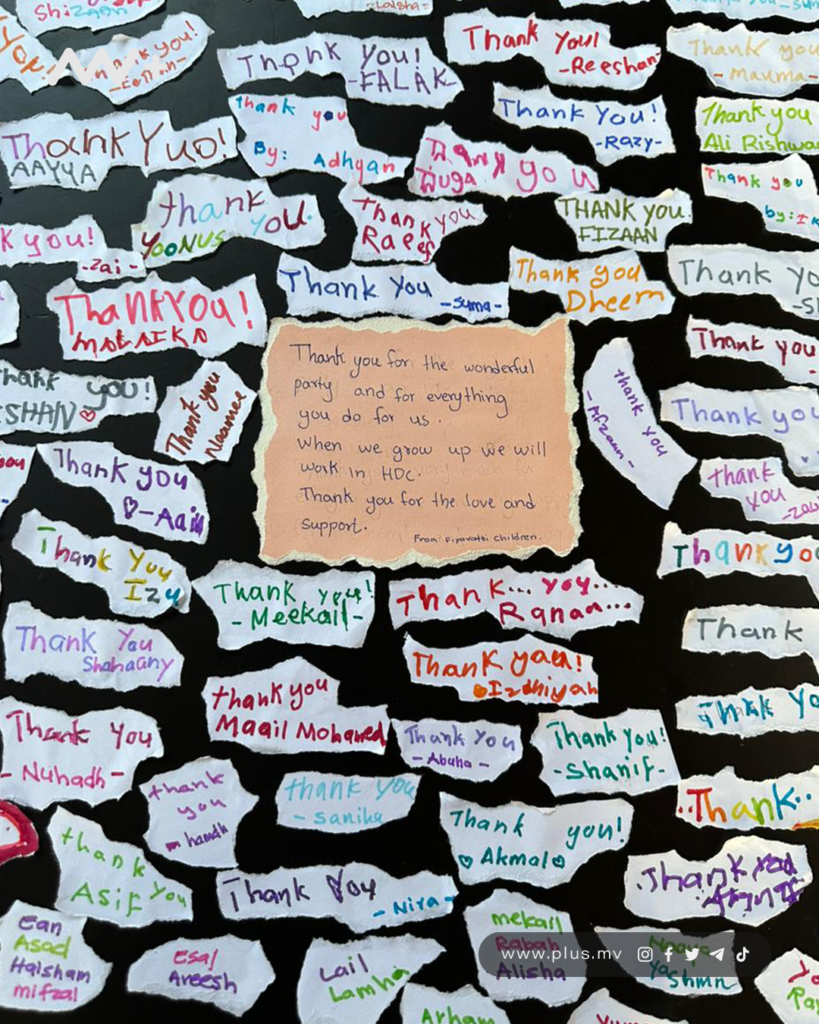 Shizaan
Thank you!
Thank You!
-FALAK-
Thank You!
-Reeshan
Thank you
- mauma -
ThankYuo!
AAYYA
thank you
By: Adhyan
Thank You!
-Razy-
Thank you
Ali Rishwa
Thank you
Thank you
by: IK
Thank You
YOONUS
Thank you
Raees
THANK YOU!
FIZAAN
k you!
-Zai-
ThanKYOU!
Thank You
-suma-
Thank you
Dheem
Thank Yo
Thank you
Thank you!
ESHAN
Thank you
Naamee
Thank you for the wonderful
party and for everything
you do for us.
When we grow up we will
work in HDC.
Thank you for the love and
support.
From: Fiyavathi Children.
thank you
-Afzaan-
Thank you
Thank you
thank
you
Thank You
Izu
Thank you!
-Meekail-
Thank... you...
Ranaa...
Thankyo
Thank You
Shahaany
Thank you!
Izdhiyan
Thank
thank you
Maail Mohamed
Thank You
- Nuhadh -
Thank You
- Abuha -
Thank you!
-Shanif-
Thank Yo
thank
you
hamdh
thank you
- saniha
Thank you!
Akmal
..Thank..
thank
you
Asif
Thank You
- Nira -
Thank
Ean
Asad
Haisham
mifzal
Esal
Areesh
Lail
Lamha
mekail
Rabah
Alisha
Naaya
Yashmn
www.plus.mv
Arham